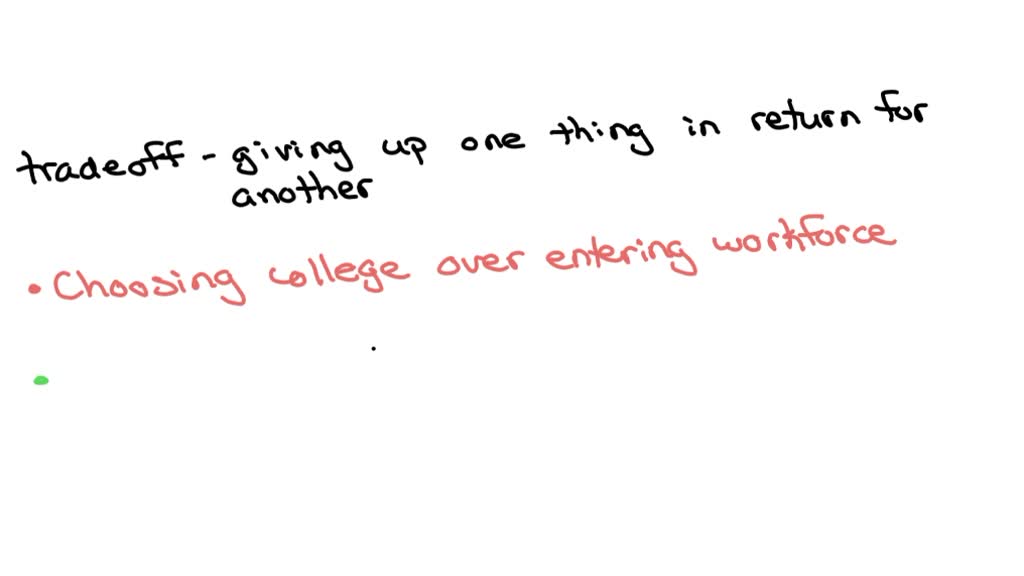 tradeoff - giving up one thing in return for
another
• Choosing college over entering workforce
•